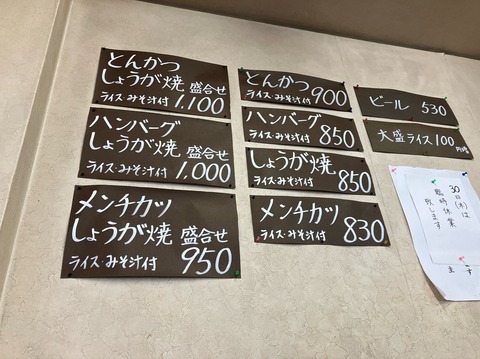 とんかつ
しょうが焼 盛合せ
ライス・みそ汁付 1,100
ハンバーグ
しょうが焼 盛合せ
ライス・みそ汁付 1,000
メンチカツ
しょうが焼 盛合せ
ライス・みそ汁付 950
とんかつ
ライス・みそ汁付 900
ハンバーグ
ライス・みそ汁付 850
しょうが焼
ライス・みそ汁付 850
メンチカツ
ライス・みそ汁付 830
ビール 530
大盛ライス 100
30日(木)は
臨時休業
致します